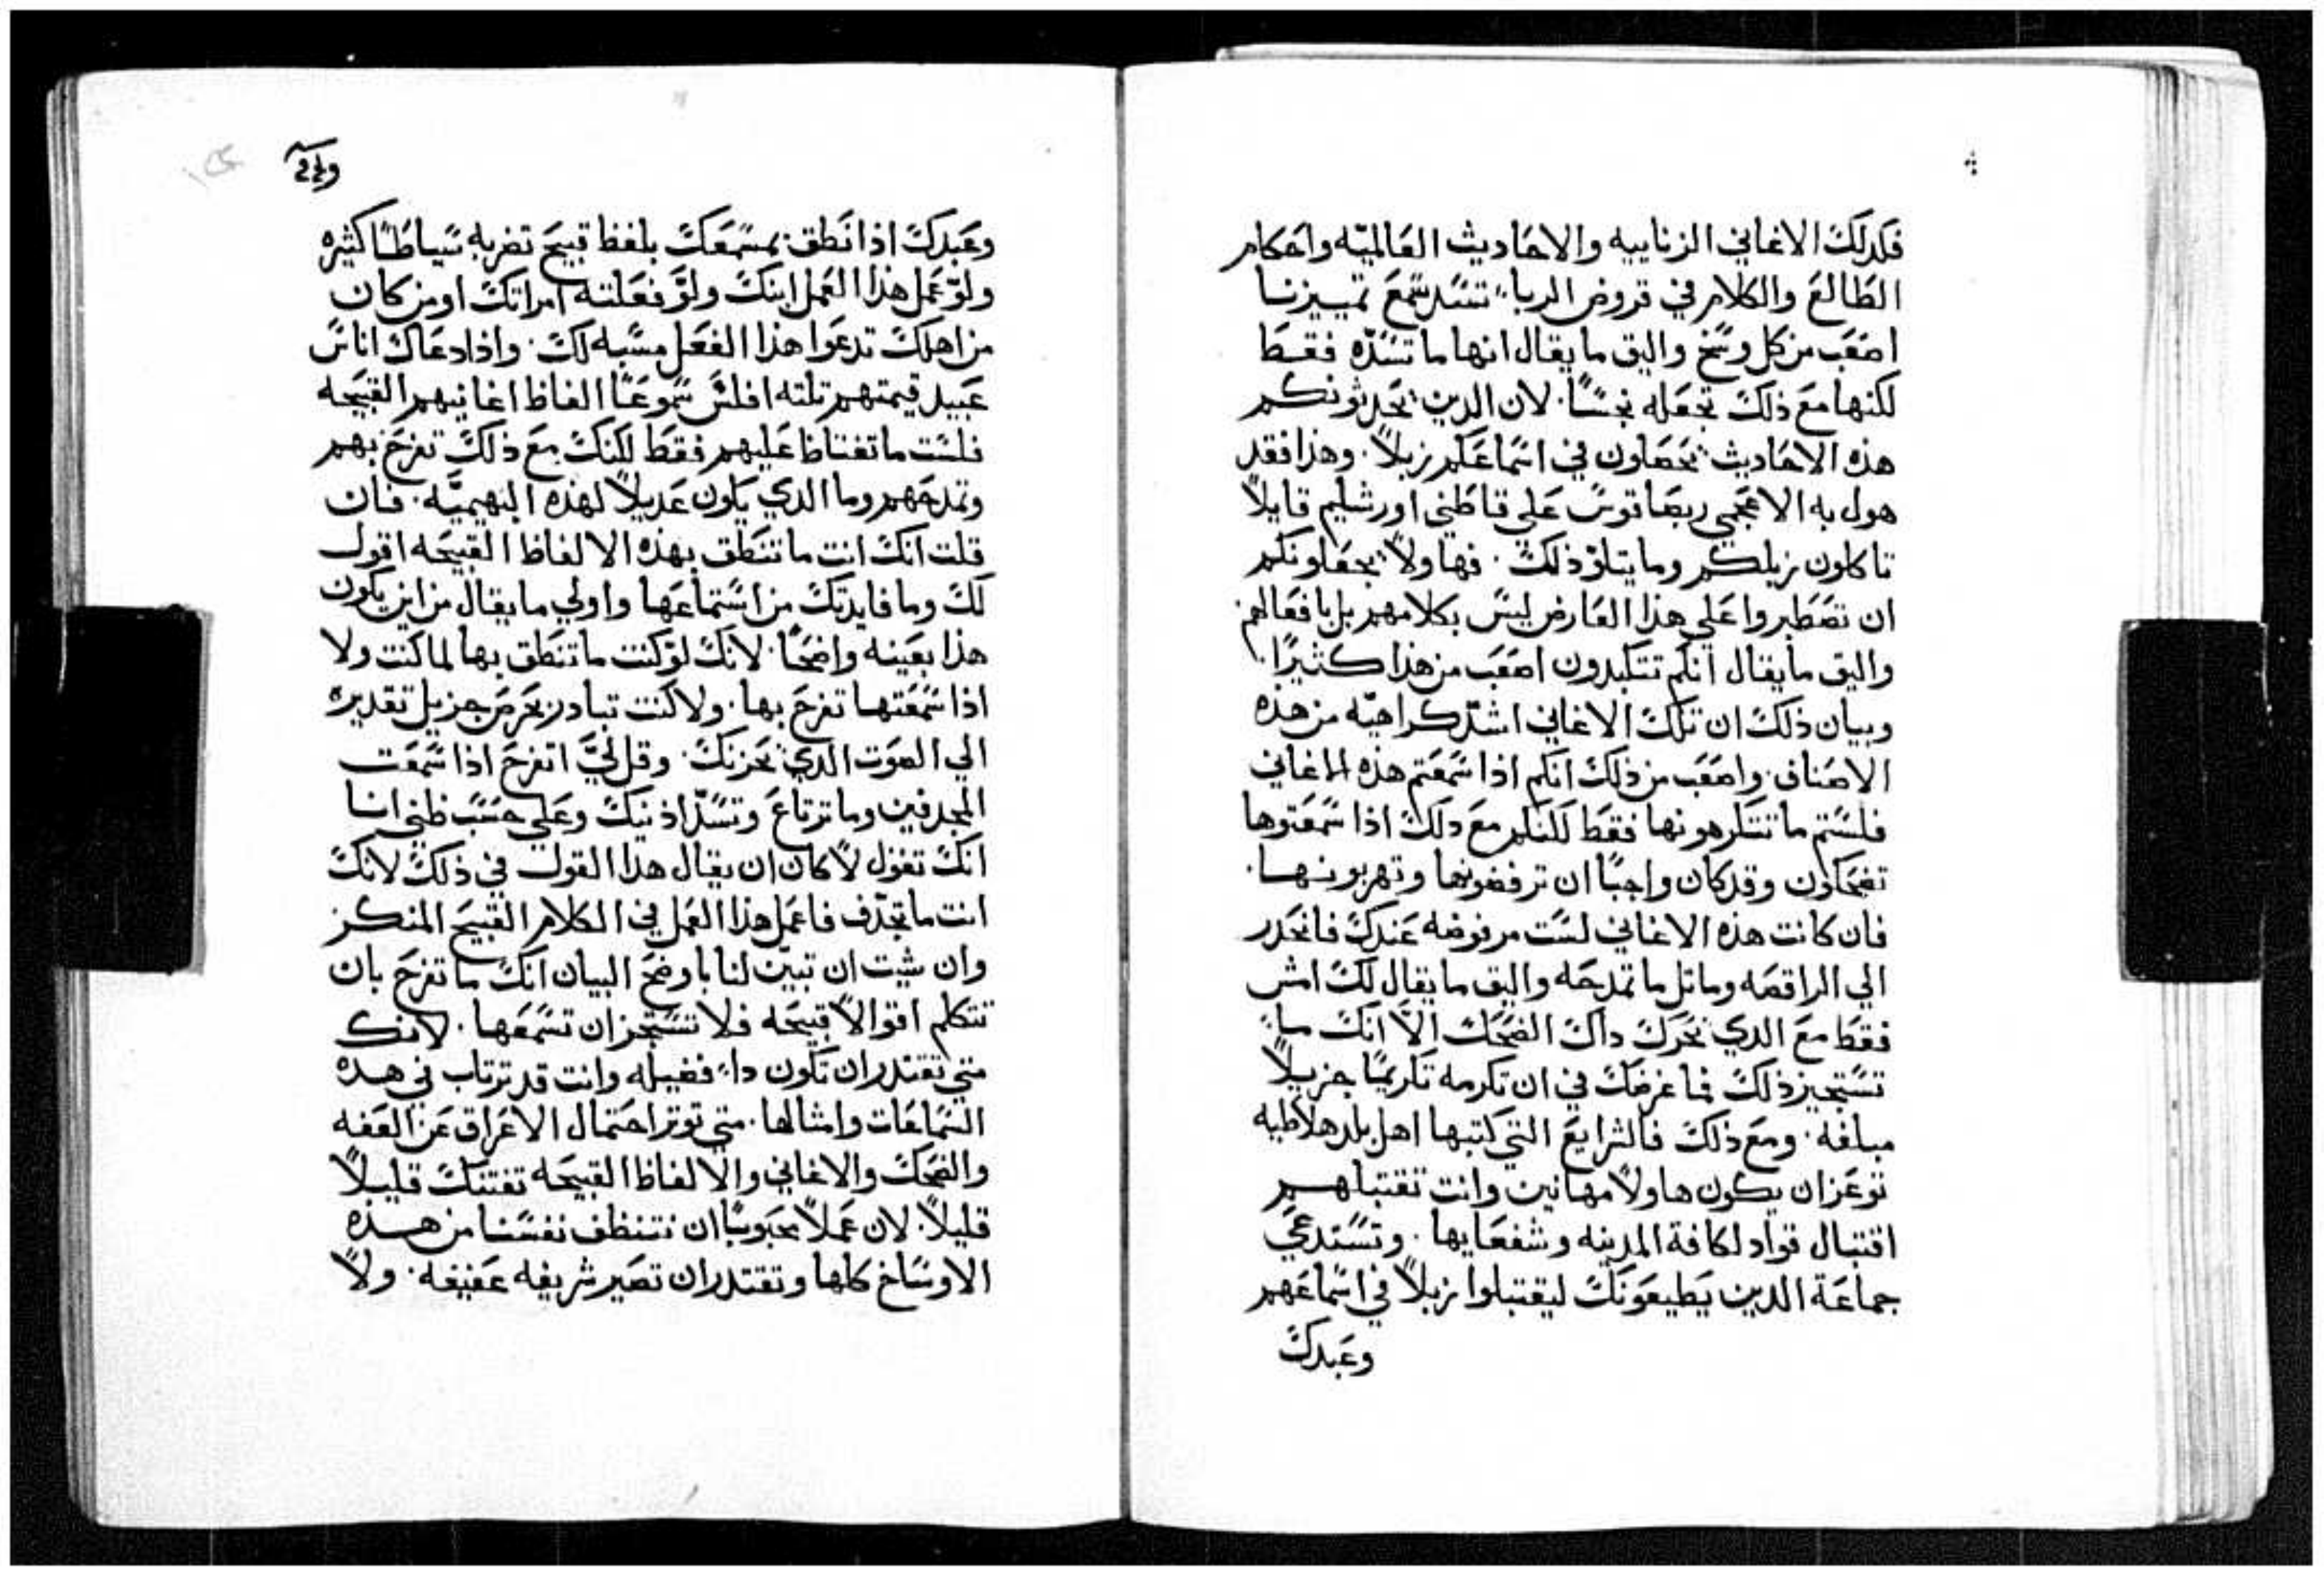 فكدلك الاغاني الزناييه والاحاديث العالميّه واحكام
الطالع والكلام في قروض الربا تسّد سمع تمييزنا
اصعب من كل وسخ واليق ما يقال انها ما تسّدّه فقط
لكنها مع ذلك تجعله نجسًا. لان الدين يحدثونكم
هذه الاحاديث يجعلون في اسماعكم زبلاً. وهذا فقد
هول به الاعجمي ربصاقوس علي قاطني اورشليم قايلاً
تاكلون زبلكم وما يتلو ذلك. فهاولاً يجعلونكم
ان تصطبروا علي هذا العارض ليس بكلامهم بل بافعالهم
واليق ما يقال انكم تتكبدون اصعب من هذا كثيرًا.
وبيان ذلك ان تلك الاغاني اشدّ كراهيّه من هذه
الاصناف. واصعب من ذلك انكم اذا سمعتم هذه الاغاني
فلستم ما تتكرهونها فقط لكنكم مع دلك اذا سمعتوها
تضحكون وقد كان واجبًا ان ترفضونها وتهربونها.
فان كانت هذه الاغاني لست مرفوضه عندك فانحدر
الي الراقصه وماثل ما تمدحه واليق ما يقال لك امش
فقط مع الدي يحرك داك الضحك الاّ انك ما
تستجيز ذلك فما غرضك في ان تكرمه تكريمًا جزيلاً
مبلغه. ومع ذلك فالشرايع التي كتبها اهل بلد هلاطيه
توعز ان يكون هاولاً مهانين وانت تقتبلهم
اقتبال قواد لكافة المدينه وشفعايها. وتستدعي
جماعة الدين يطيعونك ليقتبلوا زبلاً في اسماعهم
وعبدك
وعبدك اذا نطق بمسمعك بلفظ قبيح تضربه سياطًا كثيره
ولو عمل هذا العمل ابنك ولو فعلته امراتك او من كان
من اهلك تدعوا هذا الفعل مسبه لك. واذا دعاك اناس
عبيد قيمتهم تلته افلس سموعًا الفاظ اغانيهم القبيحه
فلست ما تغتاظ عليهم فقط لكنك مع ذلك تفرح بهم
وتمدحهم وما الدي يكون عديلاً لهذه البهيميّه. فان
قلت انك انت ما تنطق بهذه الالفاظ القبيحه اقول
لك وما فايدتك من استماعها واولي ما يقال من اين يكون
هذا بعينه واضحًا. لانك لو كنت ما تنطق بها لما كنت ولا
اذا سمعتها تفرح بها. ولا كنت تبادر بحرص جزيل تقديره
الي الصوت الدي يحزنك. وقل لي اتفرح اذا سمعت
المجدفين وما ترتاع وتسدّ اذنيك وعلي حسب ظني انا
انك تقول لا كان ان يقال هدا القول في ذلك لانك
انت ما تجدّف فاعمل هذا العمل في الكلام القبيح المنكر
وان شيت ان تبين لنا باوضح البيان انك ما تفرح بان
تتكلم اقوالاً قبيحه فلا تستجز ان تسمعها. لانك
متي تقتدر ان تكون دا فضيله وانت قد ترتاب في هده
السماعات وامثالها. متي توثر احتمال الاعراق عن العفه
والضحك والاغاني والالفاظ القبيحه تفتنك قليلاً
قليلاً. لان عملاً محبوبًا ان نتنظف نفسنا من هذه
الاوساخ كلها وتقتدر ان تصير شريفه عفيفه. ولاً